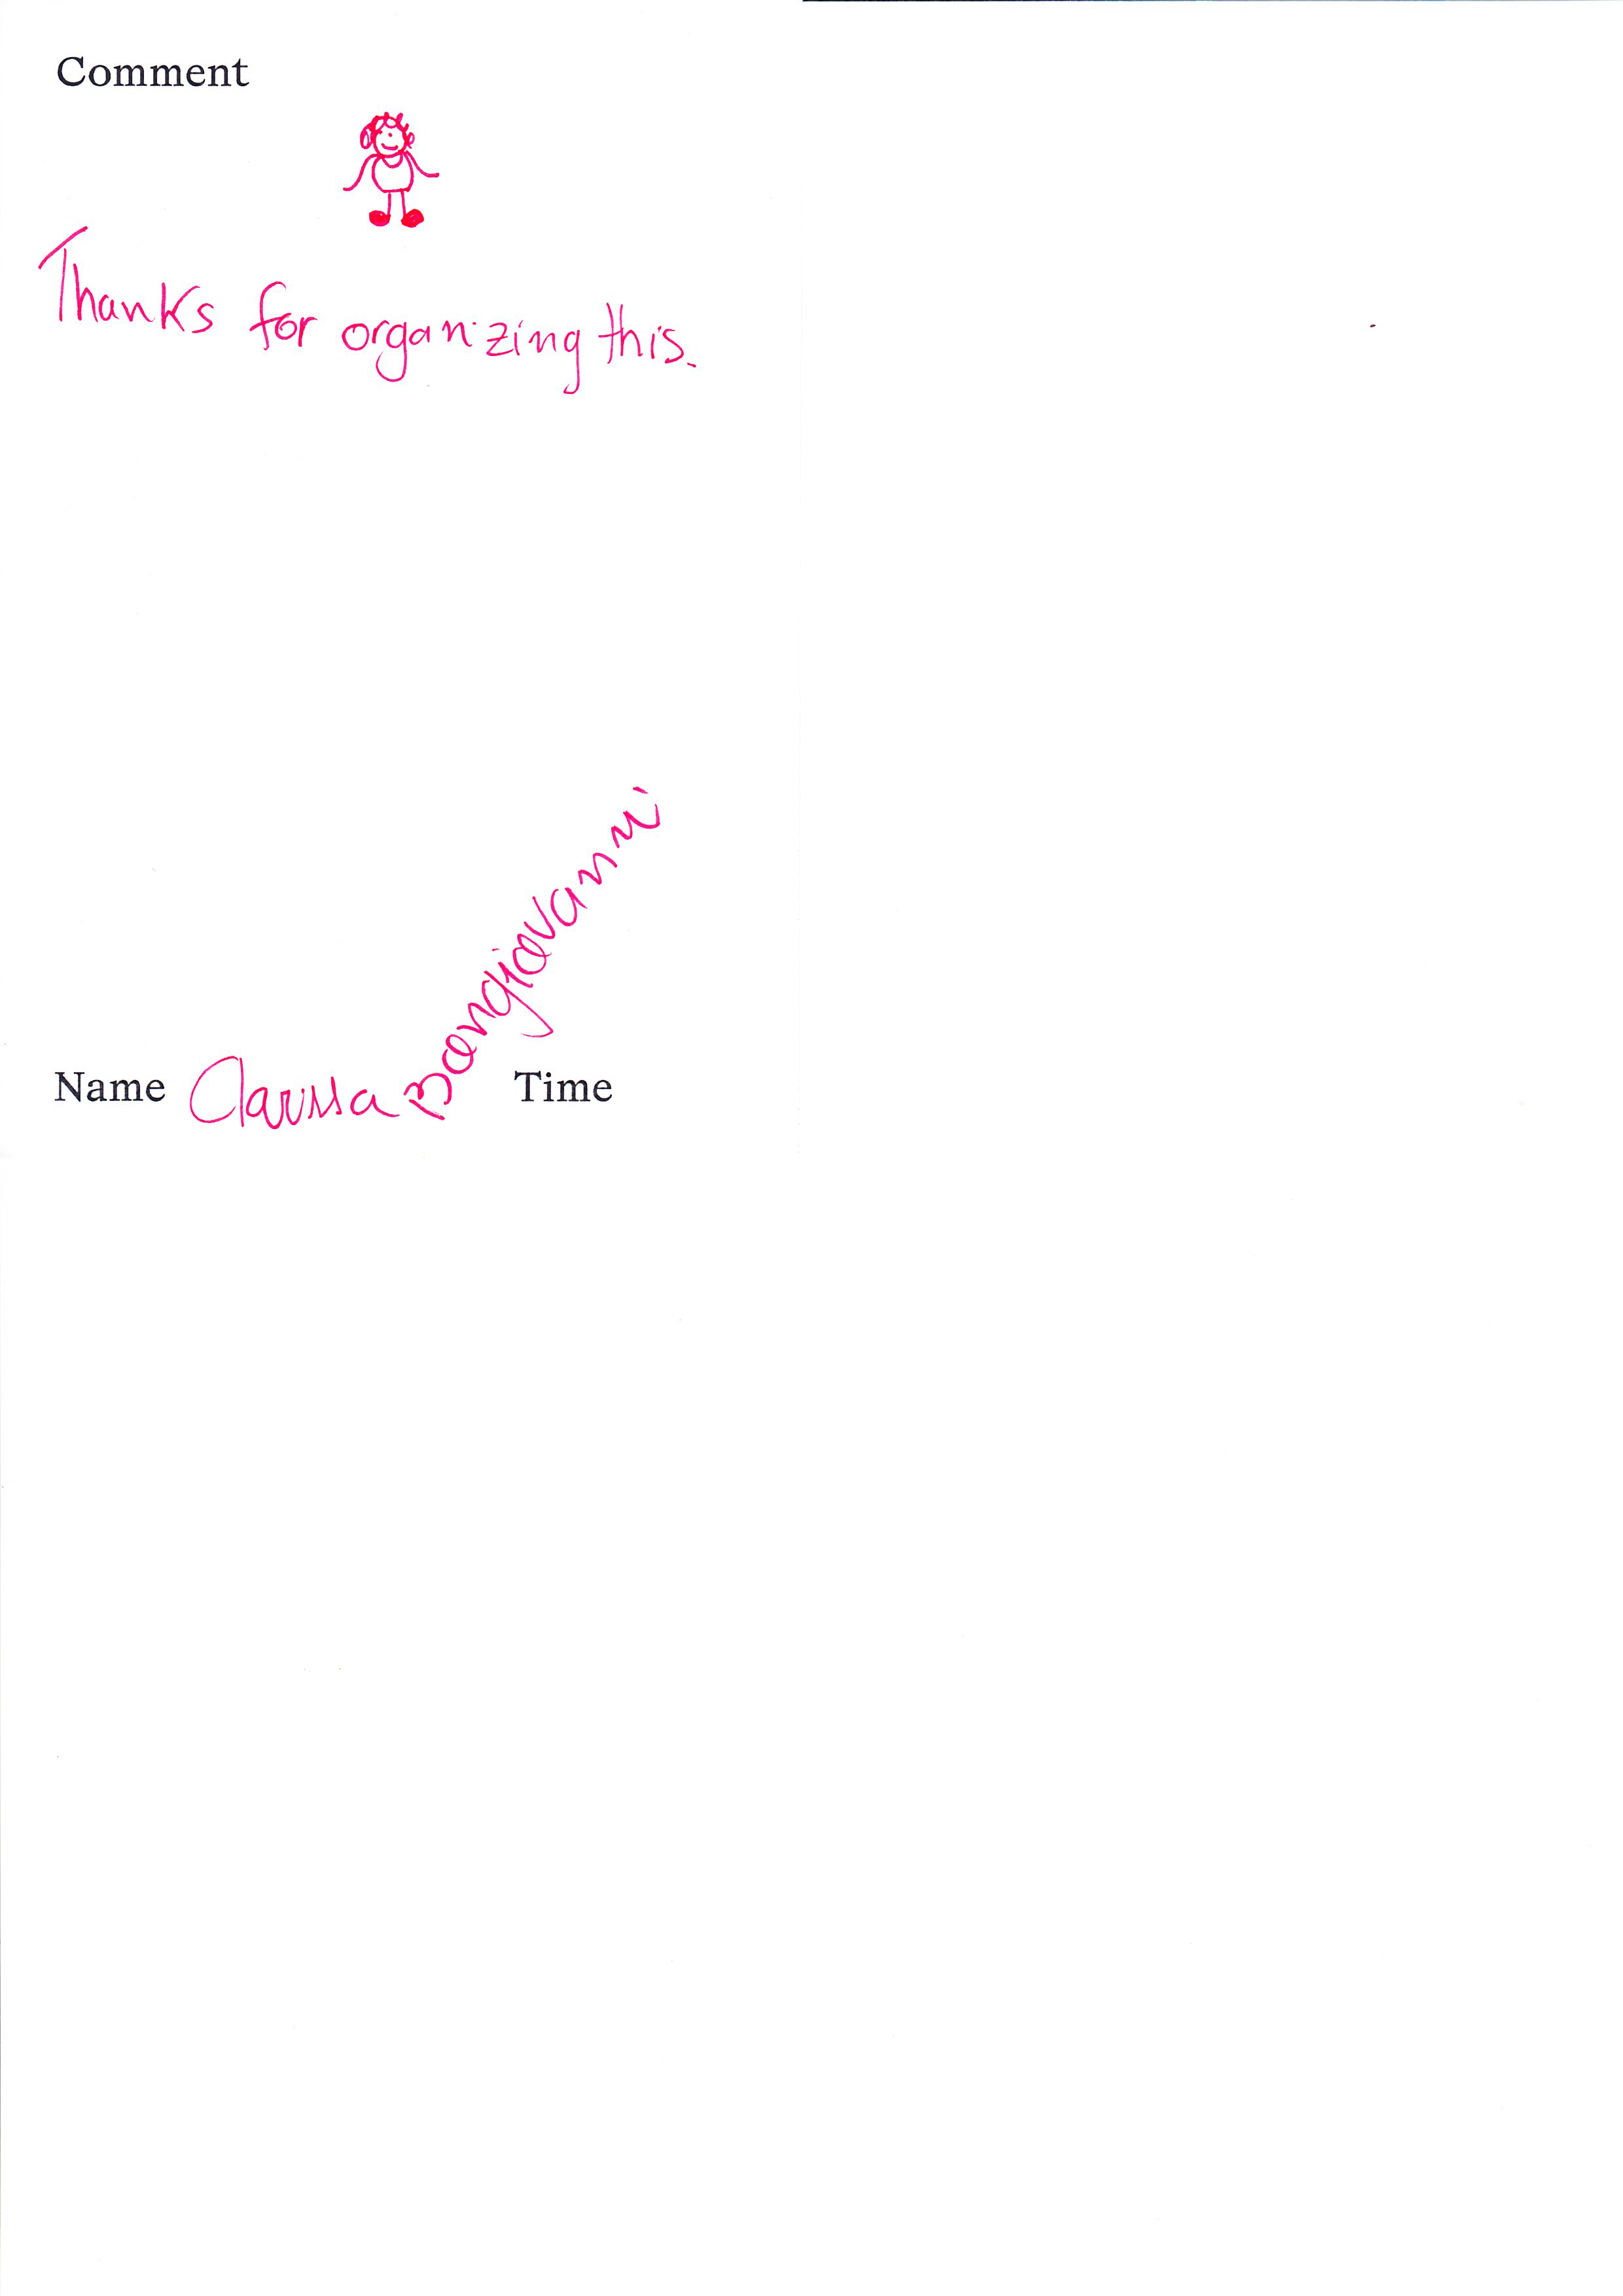 Comment
Thanks for organizing this.
Name Clarissa Bongiovanni Time